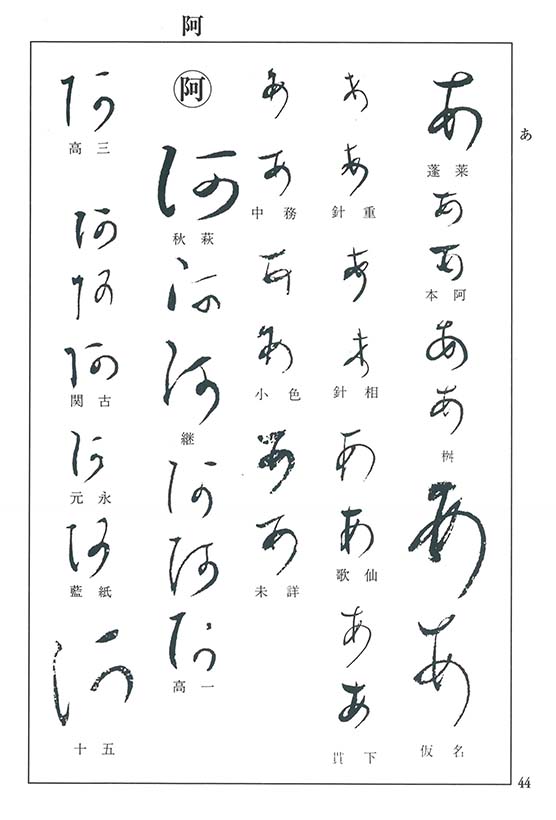 阿
あ
あ
蓬莱
あ
あ
本阿
あ
あ
枡
あ
あ
仮名
あ
あ
針重
あ
あ
針相
あ
あ
歌仙
あ
あ
貫下
あ
あ
中務
あ
あ
小色
あ
あ
未詳
阿
阿
秋萩
阿
阿
継
阿
阿
阿
高一
阿
高三
阿
阿
阿
関古
阿
元永
阿
藍紙
阿
十五
44